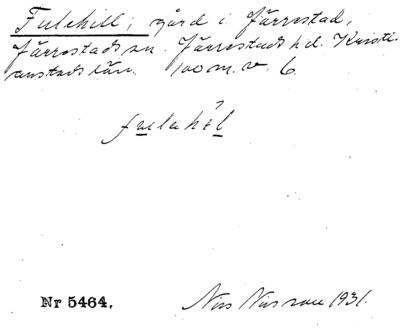 Fulehill; gård i Järrestad,
Järrestads sn. Järrestads hd. Kristi-
anstads län. 100 m. v. 6.
fuleh
Nr 5464.
Nils Nilsson 1931.